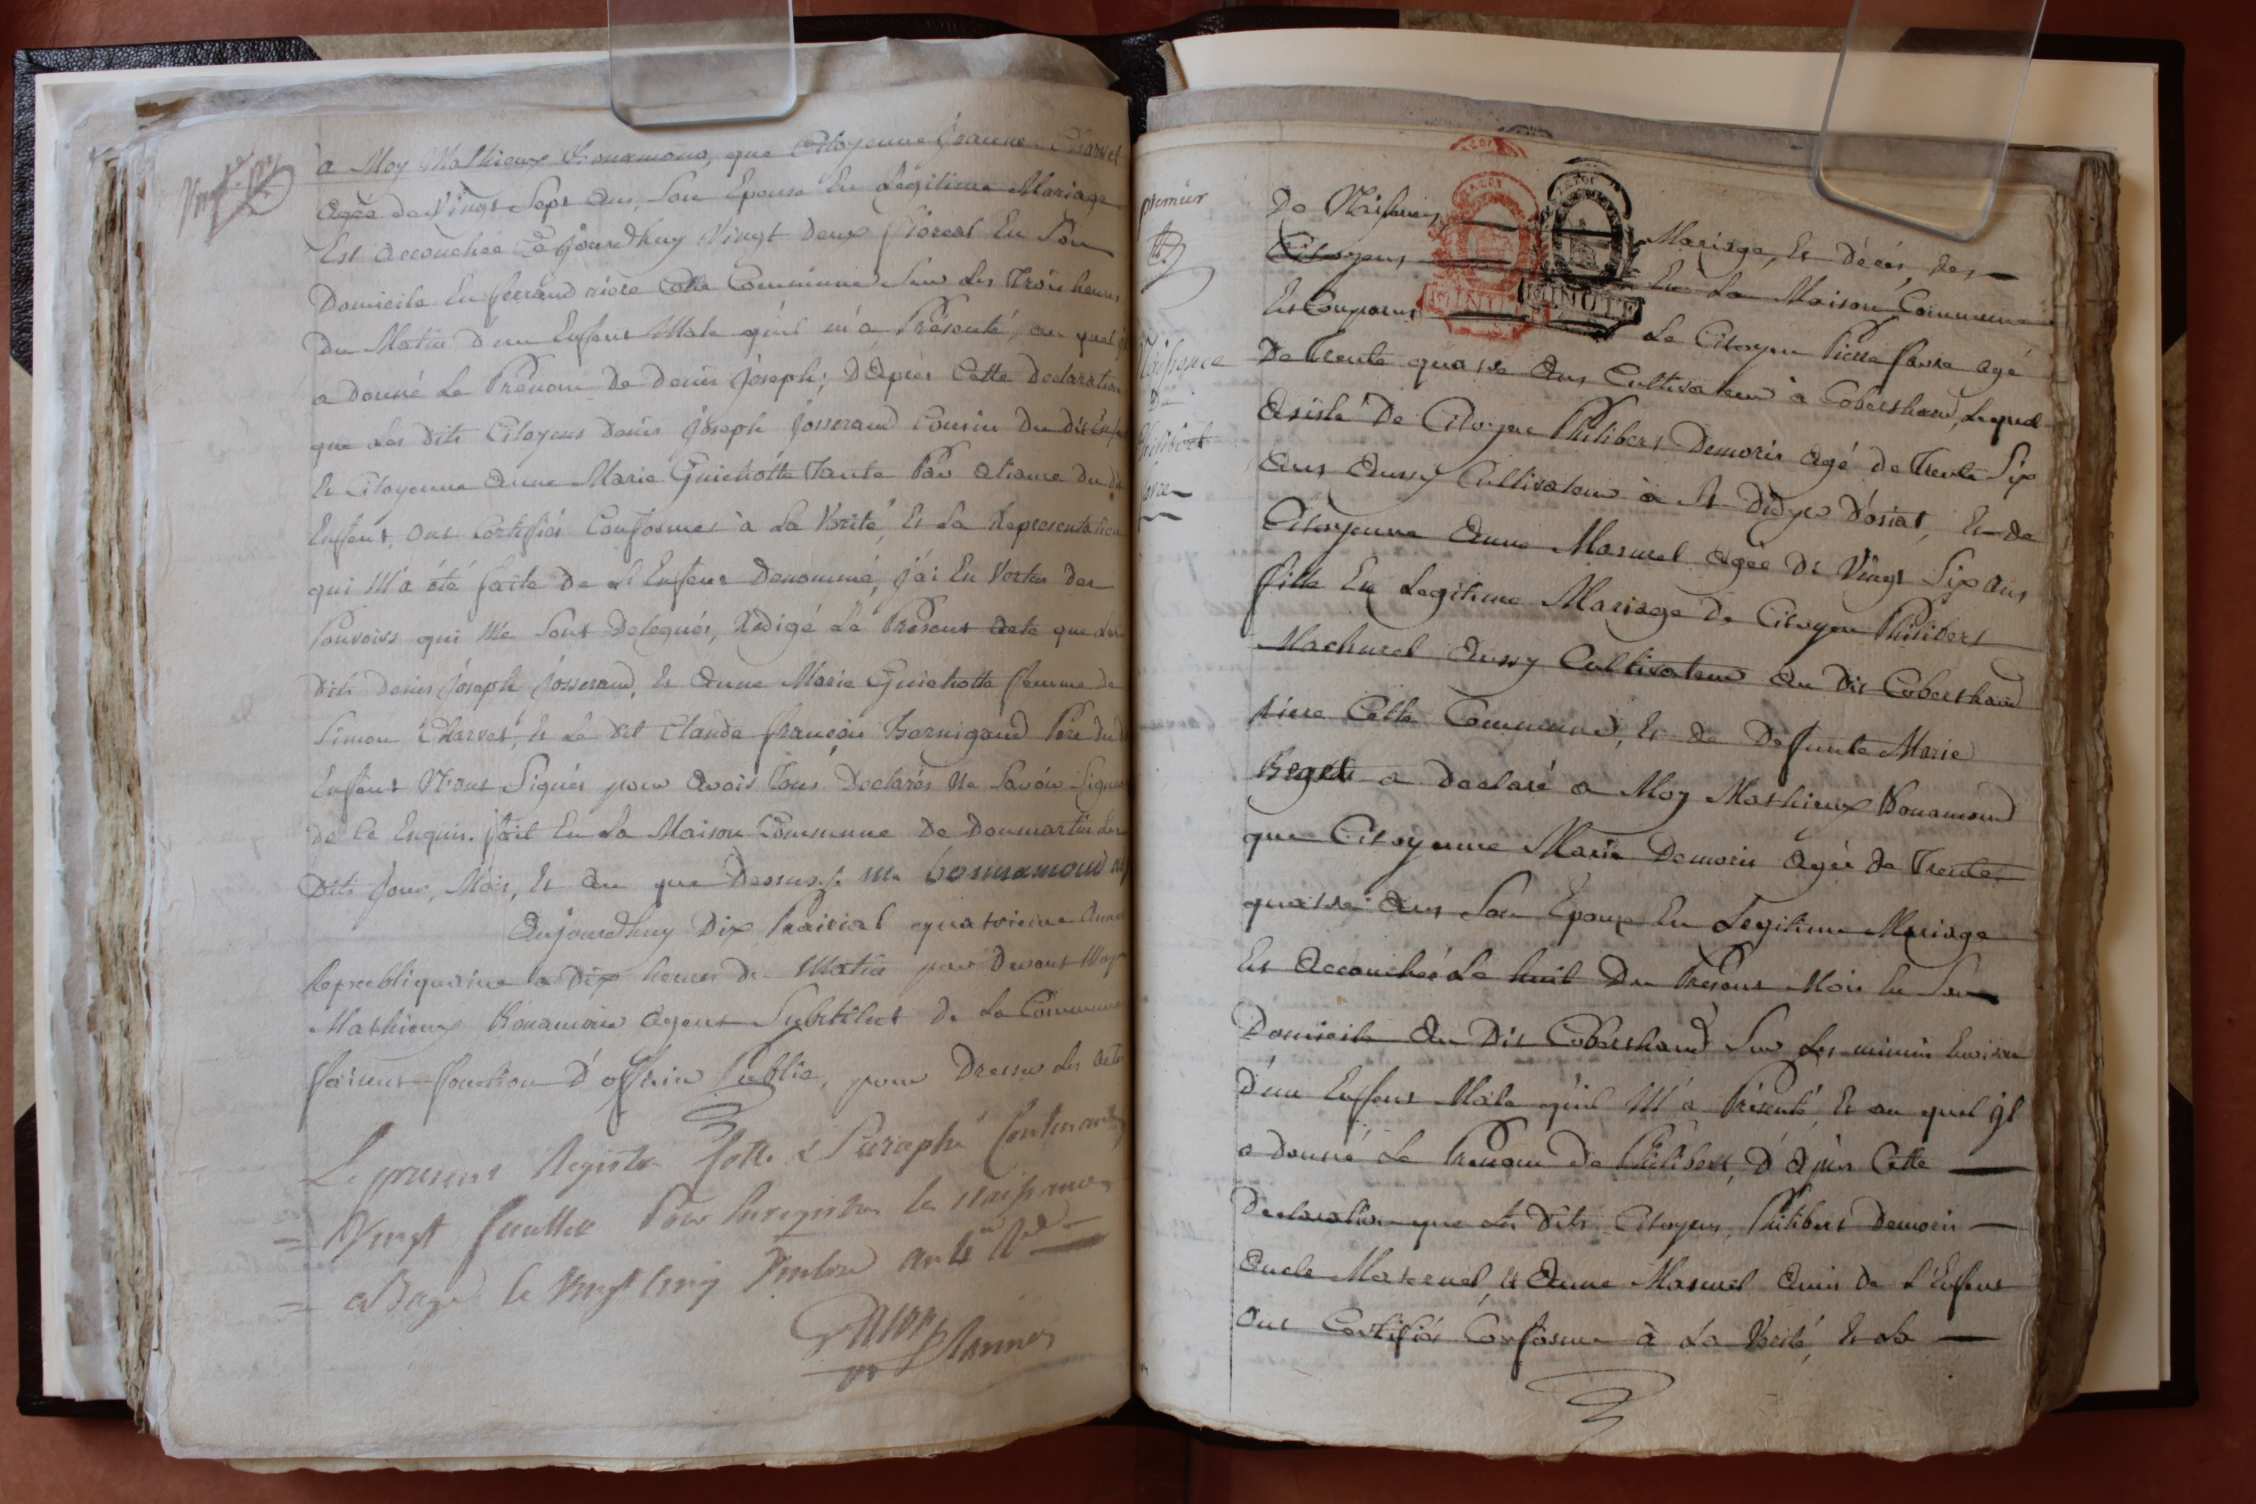 à Moy Mathieux Bonamour, que Citoyenne Jeanne Charvet
agée de Vingt Sept ans, Son Epouse En Légitime Mariage
Est accouchée Ce jourdhuy Vingt deux floreal En Son
Domicile En ferrand rière Cette Commune Sur Les Trois heures
Du Matin d'un Enfant Male qu'il m'a Présenté, au quel il
a donné Le Prénom De denis Joseph; D'après Cette declaration
que Les dits Citoyens denis Joseph Josserand Cousin Du dit Enft
Et Citoyenne Anne Marie Guichotte Tante Par aliance du dt
Enfent, ont Certifiés Conforme à La Vérité, Et La Representation
qui M'a été faite De L'Enfent Denommé, j'ai En Vertu Des
Pouvoirs qui Me Sont Delegués, Rédigé Le Présent Acte que Les
dits Denis Joseph Josserand, Et Anne Marie Guichotte femme de
Simon Charvet, Et Le dit Claude françois Bornigaud Père du dt
Enfent N'ont Signés pour Avoir Tous Declarés Ne Savoir Signer
De Ce Enquis. fait En La Maison Commune De Donmartin Les
Dits Jour, Mois, Et An que Dessus /. m. bonnamour
Aujourdhuy Dix Prairial quatrieme Année
Republiquaine a Dix heures Du Matin par Devant Moy
Mathieux Bonamour Agent Substitut De La Commune
faisant fonction D'officier Public, pour Dresser Les Actes
Le present Registre Cotté & Paraphé Contenant
Vingt feuillets Pour Enregistrer les Naissances
a Bagé le Vingt Cinq an 4e Rp
premier
De Naissances Mariage, Et Décès, des
Citoyens En La Maison Commune
Est Comparu Le Citoyen Pierre favre agé
Naissance
De Trente quatre Ans Cultivateur à Cobershaud, Lequel
De
Assisté De Citoyen Philibert Demoris agé de Trente Six
Philibert
Ans Aussy Cultivateur à St Didye D'osiat, Et de
favre
Citoyenne Anne Masurel agée De Vingt Six ans
fille En Legitime Mariage De Citoyen Philibert
Machurel Aussy Cultivateur Au Dit Cobershaud
riere Cette Commune, Et De Defunte Marie
Reget a Declaré a Moy Mathieux Bonamour
que Citoyenne Marie Demoris Agée de Trente
quatre Ans Son Epouse En Legitime Mariage
Est Accouchée Le huit Du Présent Mois En Son
Domicile Au Dit Cobershaud Sur Les minuit Environ
d'un Enfent Male qu'il M'a Présenté, Et au quel jl
a Donné Le Prenom De Philibert, D'Après Cette
Declaration que Les Dits Citoyens, Philibert Demoris
Oncle Maternel, et Anne Masurel Amis de L'Enfent
Ont Certifiés Conforme à La Vérité, Et La